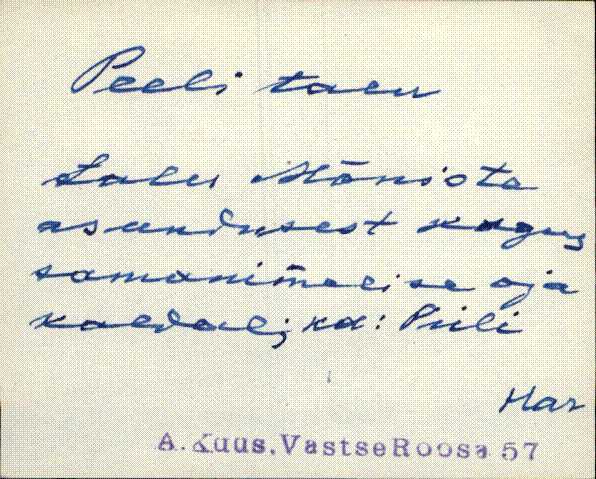 Peeli taeu
Laheu Mõniste
asundusest kagus
samanimelise oja
kaldal; ka: Piili
Har
A. Kuus. Vastse Roosa 57